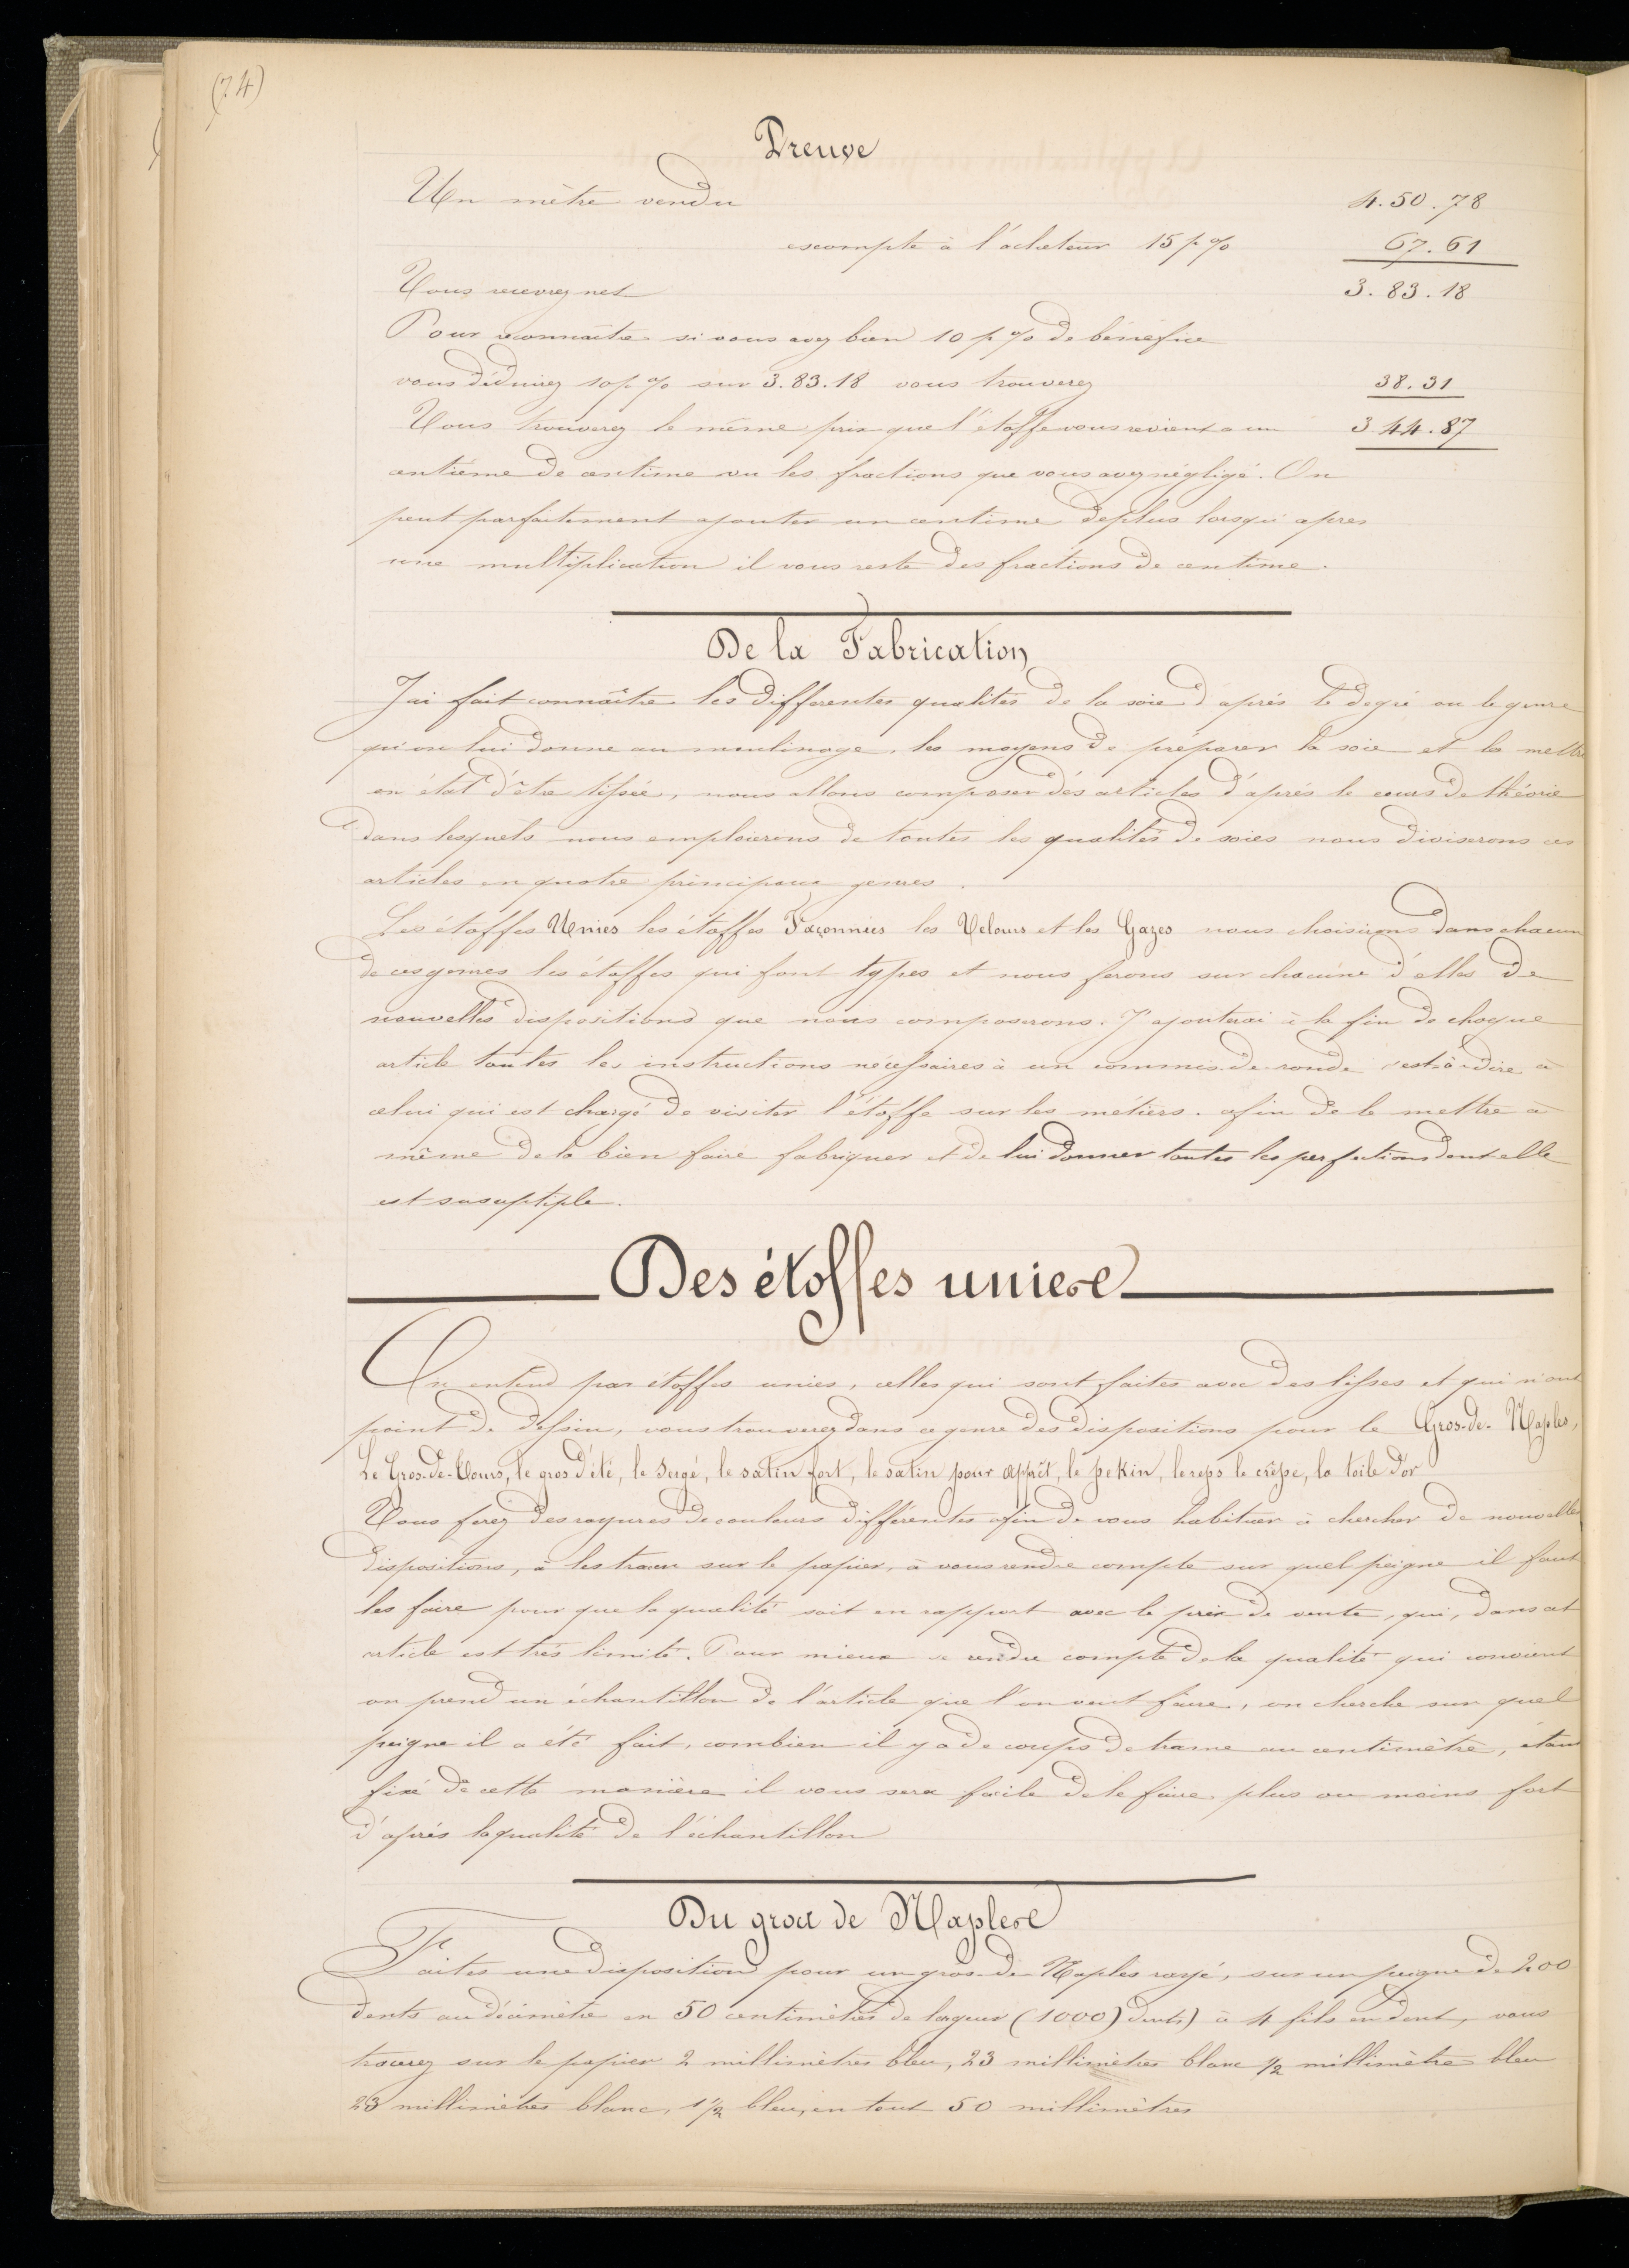 (74)
Preuve
Un mètre vendu 4.50.78
escompte à l'acheteur 15 p % 67.61
Vous recevrez net 3.83.18
Pour reconnaitre si vous avez bien 10 p % de bénéfice
vous déduirez 10 p % sur 3.83.18 vous trouverez 38.31
Vous trouverez le même prix que l'étoffe vous revient a un 3 44.87
centième de centime vu les fractions que vous avez négligé. On
peut parfaitement ajouter un centime deplus lorsqu'apres
une multiplication il vous reste des fractions de centime.
De la Fabrication
J'ai fait connaître les differentes qualités de la soie d'après le degré ou le genre
qu'on lui donne au moulinage, les moyens de préparer la soie et la mettre
en état d'être tissée, nous allons composer dès articles d'après le cours de théorie
dans lesquels nous emploierons de toutes les qualités de soies nous diviserons ces
articles en quatre principaux genres.
Les étoffes Unies les étoffes Façonnées les Velours et les Gazes nous choisirons dans chacun
de ces genres les étoffes qui font types et nous ferons sur chacune d'elles de
nouvelles dispositions que nous composerons. J'ajouterai à la fin de chaque
article toutes les instructions nécessaires à un commis-de-ronde c'est-à-dire à
celui qui est chargé de visiter l'étoffe sur les métiers. afin de le mettre à
même de la bien faire fabriquer et de lui donner toutes les perfections dont elle
est susceptiple.
Des étoffes unies
On entend par étoffes unies, celles qui sont faites avec des lisses et qui n'ont
point de dessin, vous trouverez dans ce genre des dispositions pour le Gros-de-Naples,
Le Gros-de-Tours, le gros d'été, le Sergé, le satin fort, le satin pour apprêt, le pekin, le reps le crêpe, la toile d'or
Vous ferez des rayures de couleurs différentes afin de vous habituer à chercher de nouvelles
dispositions, à les tracer sur le papier, à vous rendre compte sur quel peigne il faut
les faire pour que la qualité soit en rapport avec le prix de vente, qui, dans cet
article est très limité. Pour mieux se rendre compte de la qualité qui convient
on prend un échantillon de l'article que l'on veut faire, on cherche sur quel
peigne il a été fait, combien il y a de coups de trame au centimètre, étant
fixé de cette manière il vous sera facile de le faire plus ou moins fort
d'après la qualité de l'échantillon
Du gros de Naples
Faites une disposition pour un gros-de-Naples rayé, sur un peigne de 200
dents au décimètre en 50 centimètres de largeur (1000) dents) à 4 fils en dent, vous
tracerez sur le papier 2 millimètres bleu, 23 millimètres blanc 1/2 millimètre bleu
23 millimètres blanc, 1 1/2 bleu, en tout 50 millimètres